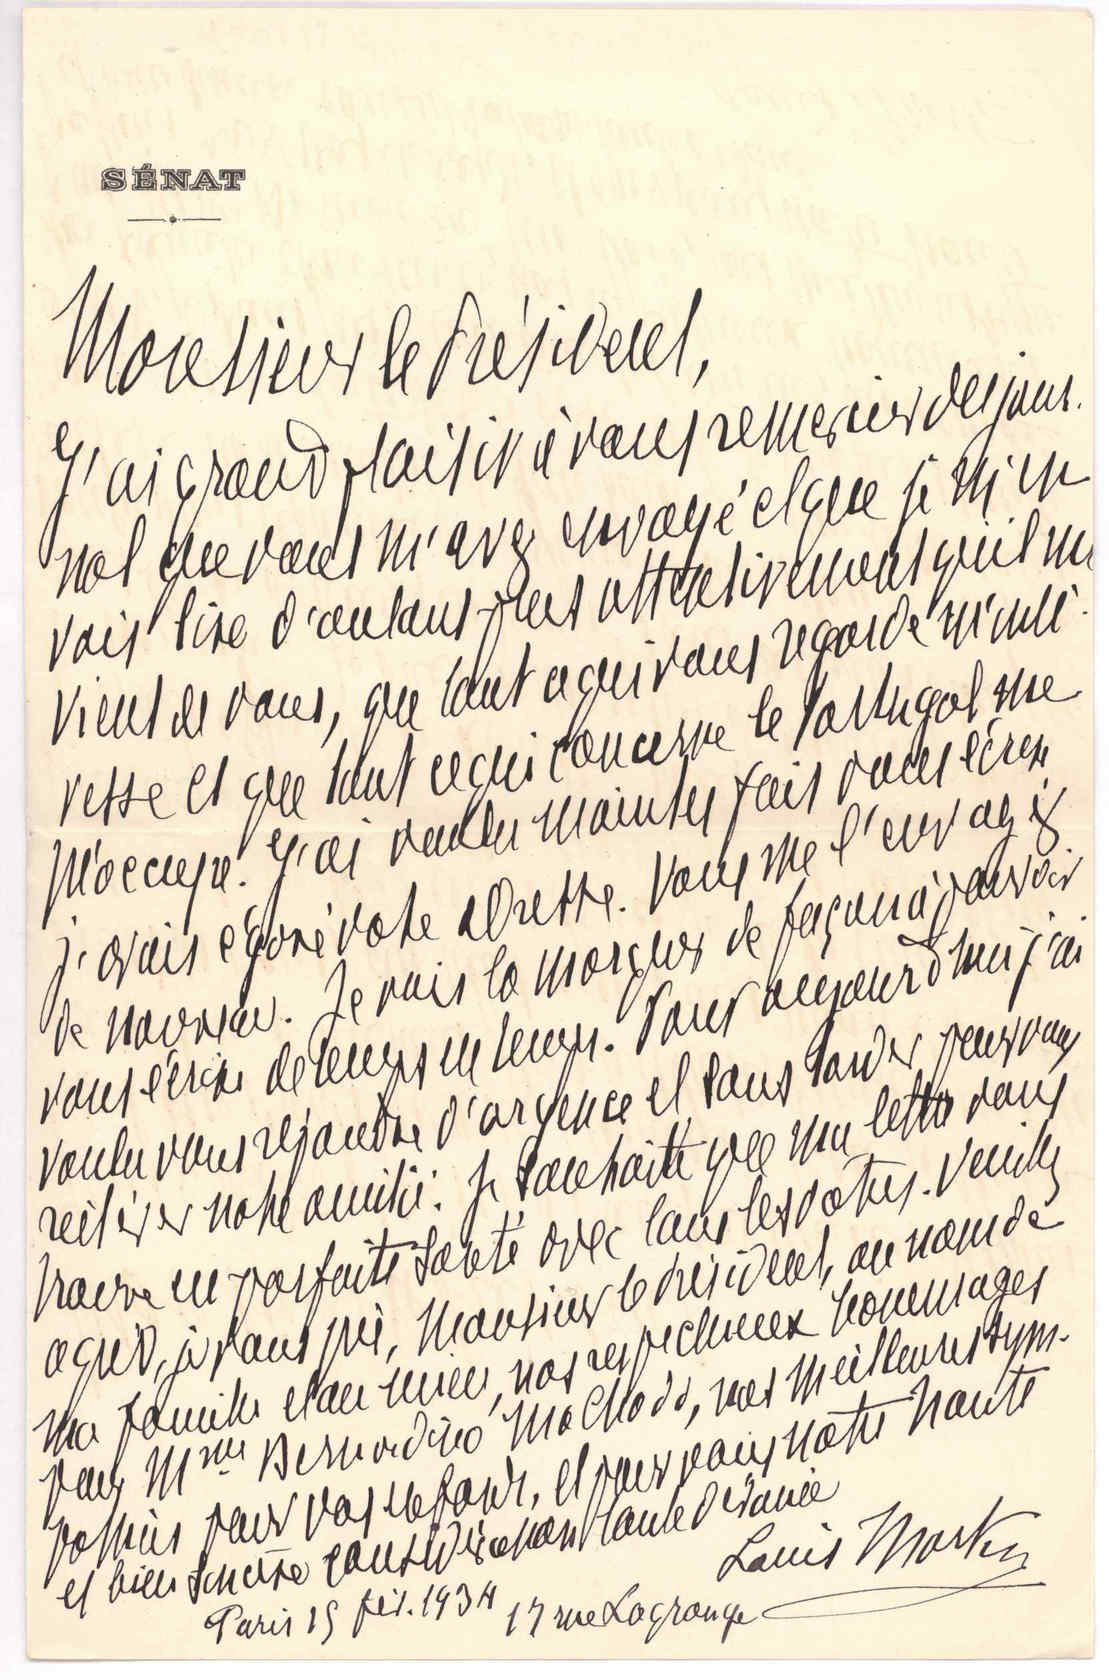 SÉNAT
Monsieur le Président,
J'ai grand plaisir à vous remercier des jour-
nal que vous m'avez envoyé et que je m'en
vais lire d'autant plus attentivement qu'il me
vient de vous, que tout ce qui vous regarde m'inté-
resse et que tout ce qui concerne le Portugal me
m'occupe. J'ai voulu maintes fois vous écrire
j'avais égaré votre adresse. Vous me l'envoyez
de nouveau. Je vais la marquer de façon à pouvoir
vous écrire de temps en temps. Pour aujourd'hui j'ai
voulu vous répondre d'urgence et sans tarder pour vous
réitérer notre amitié. Je souhaite que ma lettre vous
trouve en parfaite santé avec tous les vôtres. Veuillez
agréer, je vous prie, Monsieur le Président, au nom de
ma famille et au mien, nos respectueux hommages
pour Mme Bernardino Machado, nos meilleures sym-
pathies pour vos enfants, et pour vous notre haute
et bien sincère considération
Louis Martin
Paris 15 fév. 1934 17 rue Lagrange